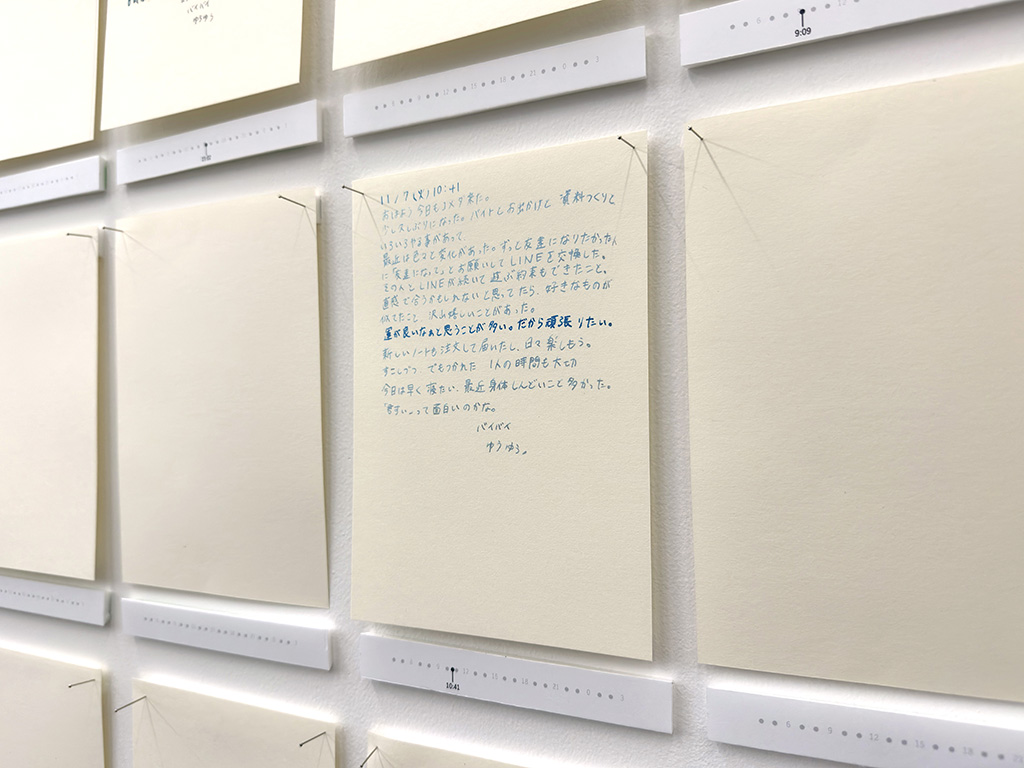 バイバイ
ゆうゆう
9:09
11/7(火)10:41
おはよう今日もコメダ来た。
少し久しぶりになった。バイトしお出かけし 資料つくりと
いろいろやる事があって、
最近は色々と変化があった。ずっと友達になりたかった人
に「友達になって」とお願いしてLINEを交換した。
その人とLINEが続いて遊ぶ約束もできたこと。
直感で合うかもしれないと思ってたら、好きなものが
似てたこと、沢山嬉しいことがあった。
運が良いなぁと思うことが多い。だから頑張りたい。
新しいノートも注文して届いたし、日々楽しもう。
すこしづつ でもつかれた 1人の時間も大切
今日は早く寝たい、最近身体しんどいこと多かった。
って面白いのかな。
バイバイ
ゆうゆう。
10:41
6 9 12 15 18 21